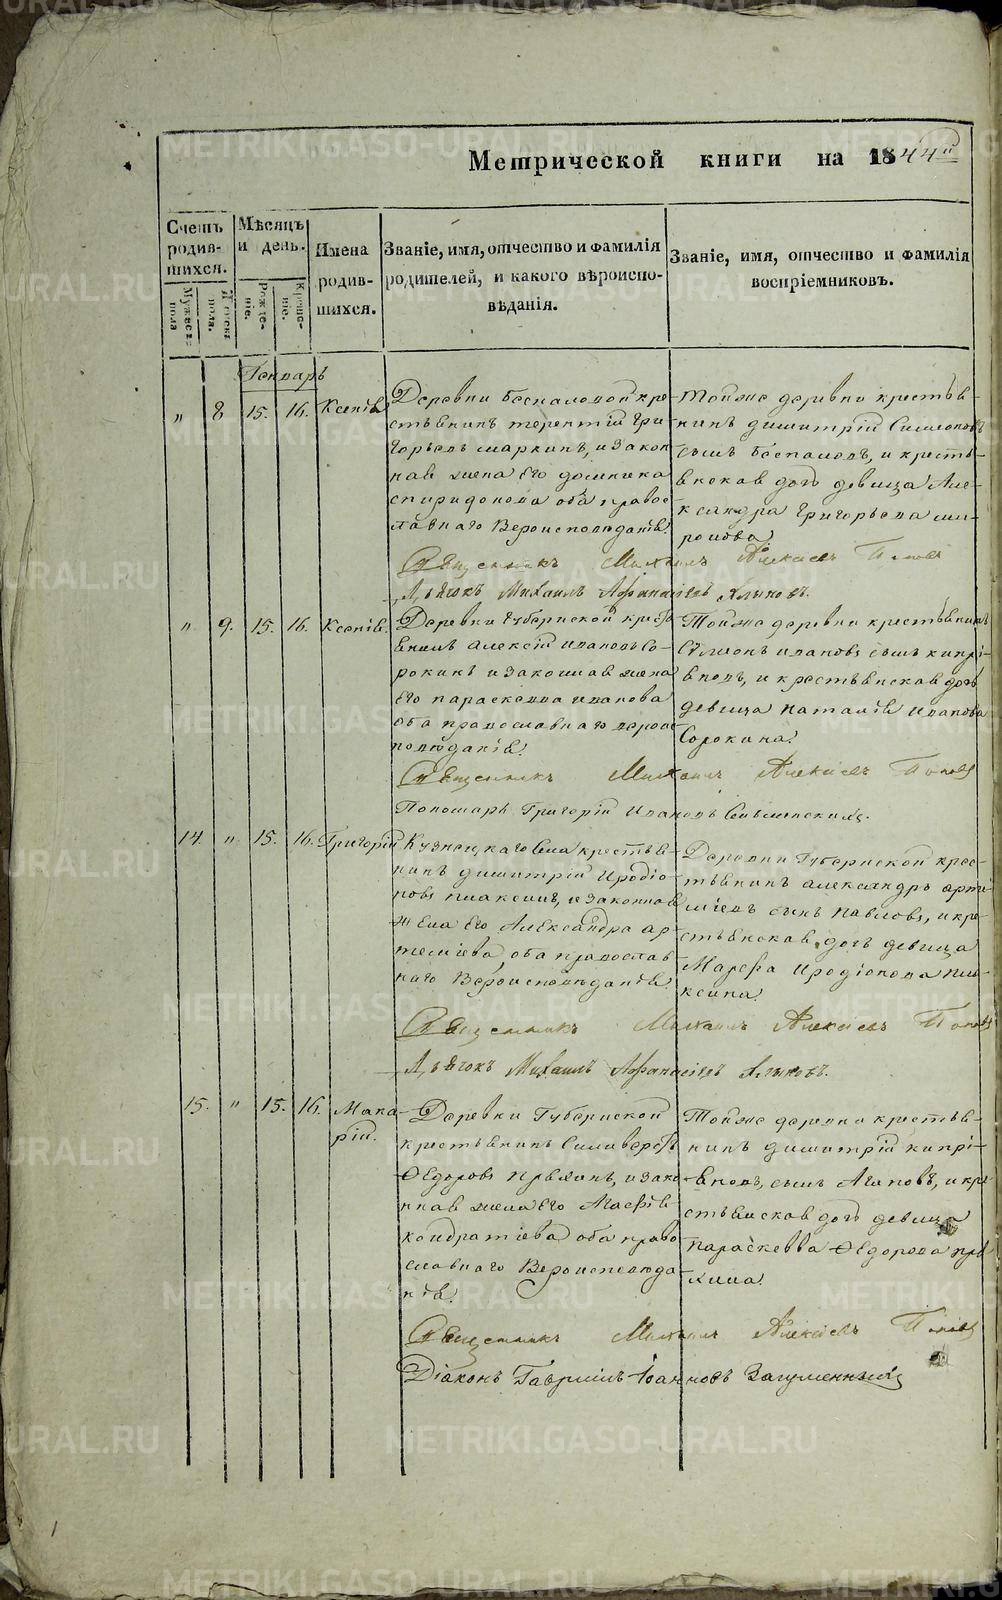 Метрической книги на 1844й
Счетъ родившихся.
Мѣсяцъ и день.
Имена родившихся.
Званіе, имя, отчество и фамилія родителей, и какого вѣроисповѣданія.
Званіе, имя, отчество и фамилія воспріемниковъ.
Мужеска пола
Женска пола.
Рожденіе.
Крещеніе.
Генварь
" 8 15. 16. Ксенія
Деревни Беспаловой кре-
стьянинъ терентій Гри-
горьевъ маркинъ, и закон-
ная жена его домника
спиридонова оба правос-
лавнаго Вероисповѣданія.
Тойже деревни крестья-
нинъ димитрій Симеоновъ
сынъ Беспаловъ, и кресть-
янская доч девица Але-
ксандра Григорьева ми-
ронова
Священникъ Михаилъ Алексѣевъ Поповъ
Дьячокъ Михаилъ Афанасіевъ Хлыновъ.
" 9. 15. 16. Ксенія.
Деревни Губернской кресть
янинъ алексій ивановъ Со-
рокинъ и законная жена
его параскевва иванова
оба православнаго вероис
поведанія.
Тойже деревни крестьянинъ
Сумеонъ ивановъ сынъ кипрі-
яновъ, и крестьянская доч
девица наталія иванова
Сорокина.
Священникъ Михаилъ Алексѣевъ Поповъ
Пономарь Григорій Ивановъ
14. " 15. 16. Григорій
Кузнецкаго Села крестья-
нинъ димитрій Иродіо-
новъ плаксинъ, и законная
жена его Александра ар-
темиева, оба православ
наго Вероисповѣданія.
Деревни Губернской крес-
тьянинъ александръ арте-
міевъ сынъ павловъ, и кре-
стьянская доч девица
Марефа Иродіонова пла-
ксина.
Священникъ Михаилъ Алексѣевъ Поповъ
Дьячокъ Михаилъ Афанасіевъ Хлыновъ.
15. " 15. 16. Мака-
рій.
Деревни Губернской
крестьянинъ Силиверстъ
Ѳедоровъ Пряхинъ, и зако-
нная жена его Агафія
кондратіева оба право
славнаго Вероисповѣда-
нія.
Тойже деревни крестья-
нинъ димитрій кипрі-
яновъ, сынъ Агаповъ, и кре
стьянская доч девица
параскевва Ѳедорова пря
хина
Священникъ Михаилъ Алексѣевъ Поповъ
Діаконъ Гавриилъ Іоанновъ Загуменныхъ
METRIKI.GASO-URAL.RU